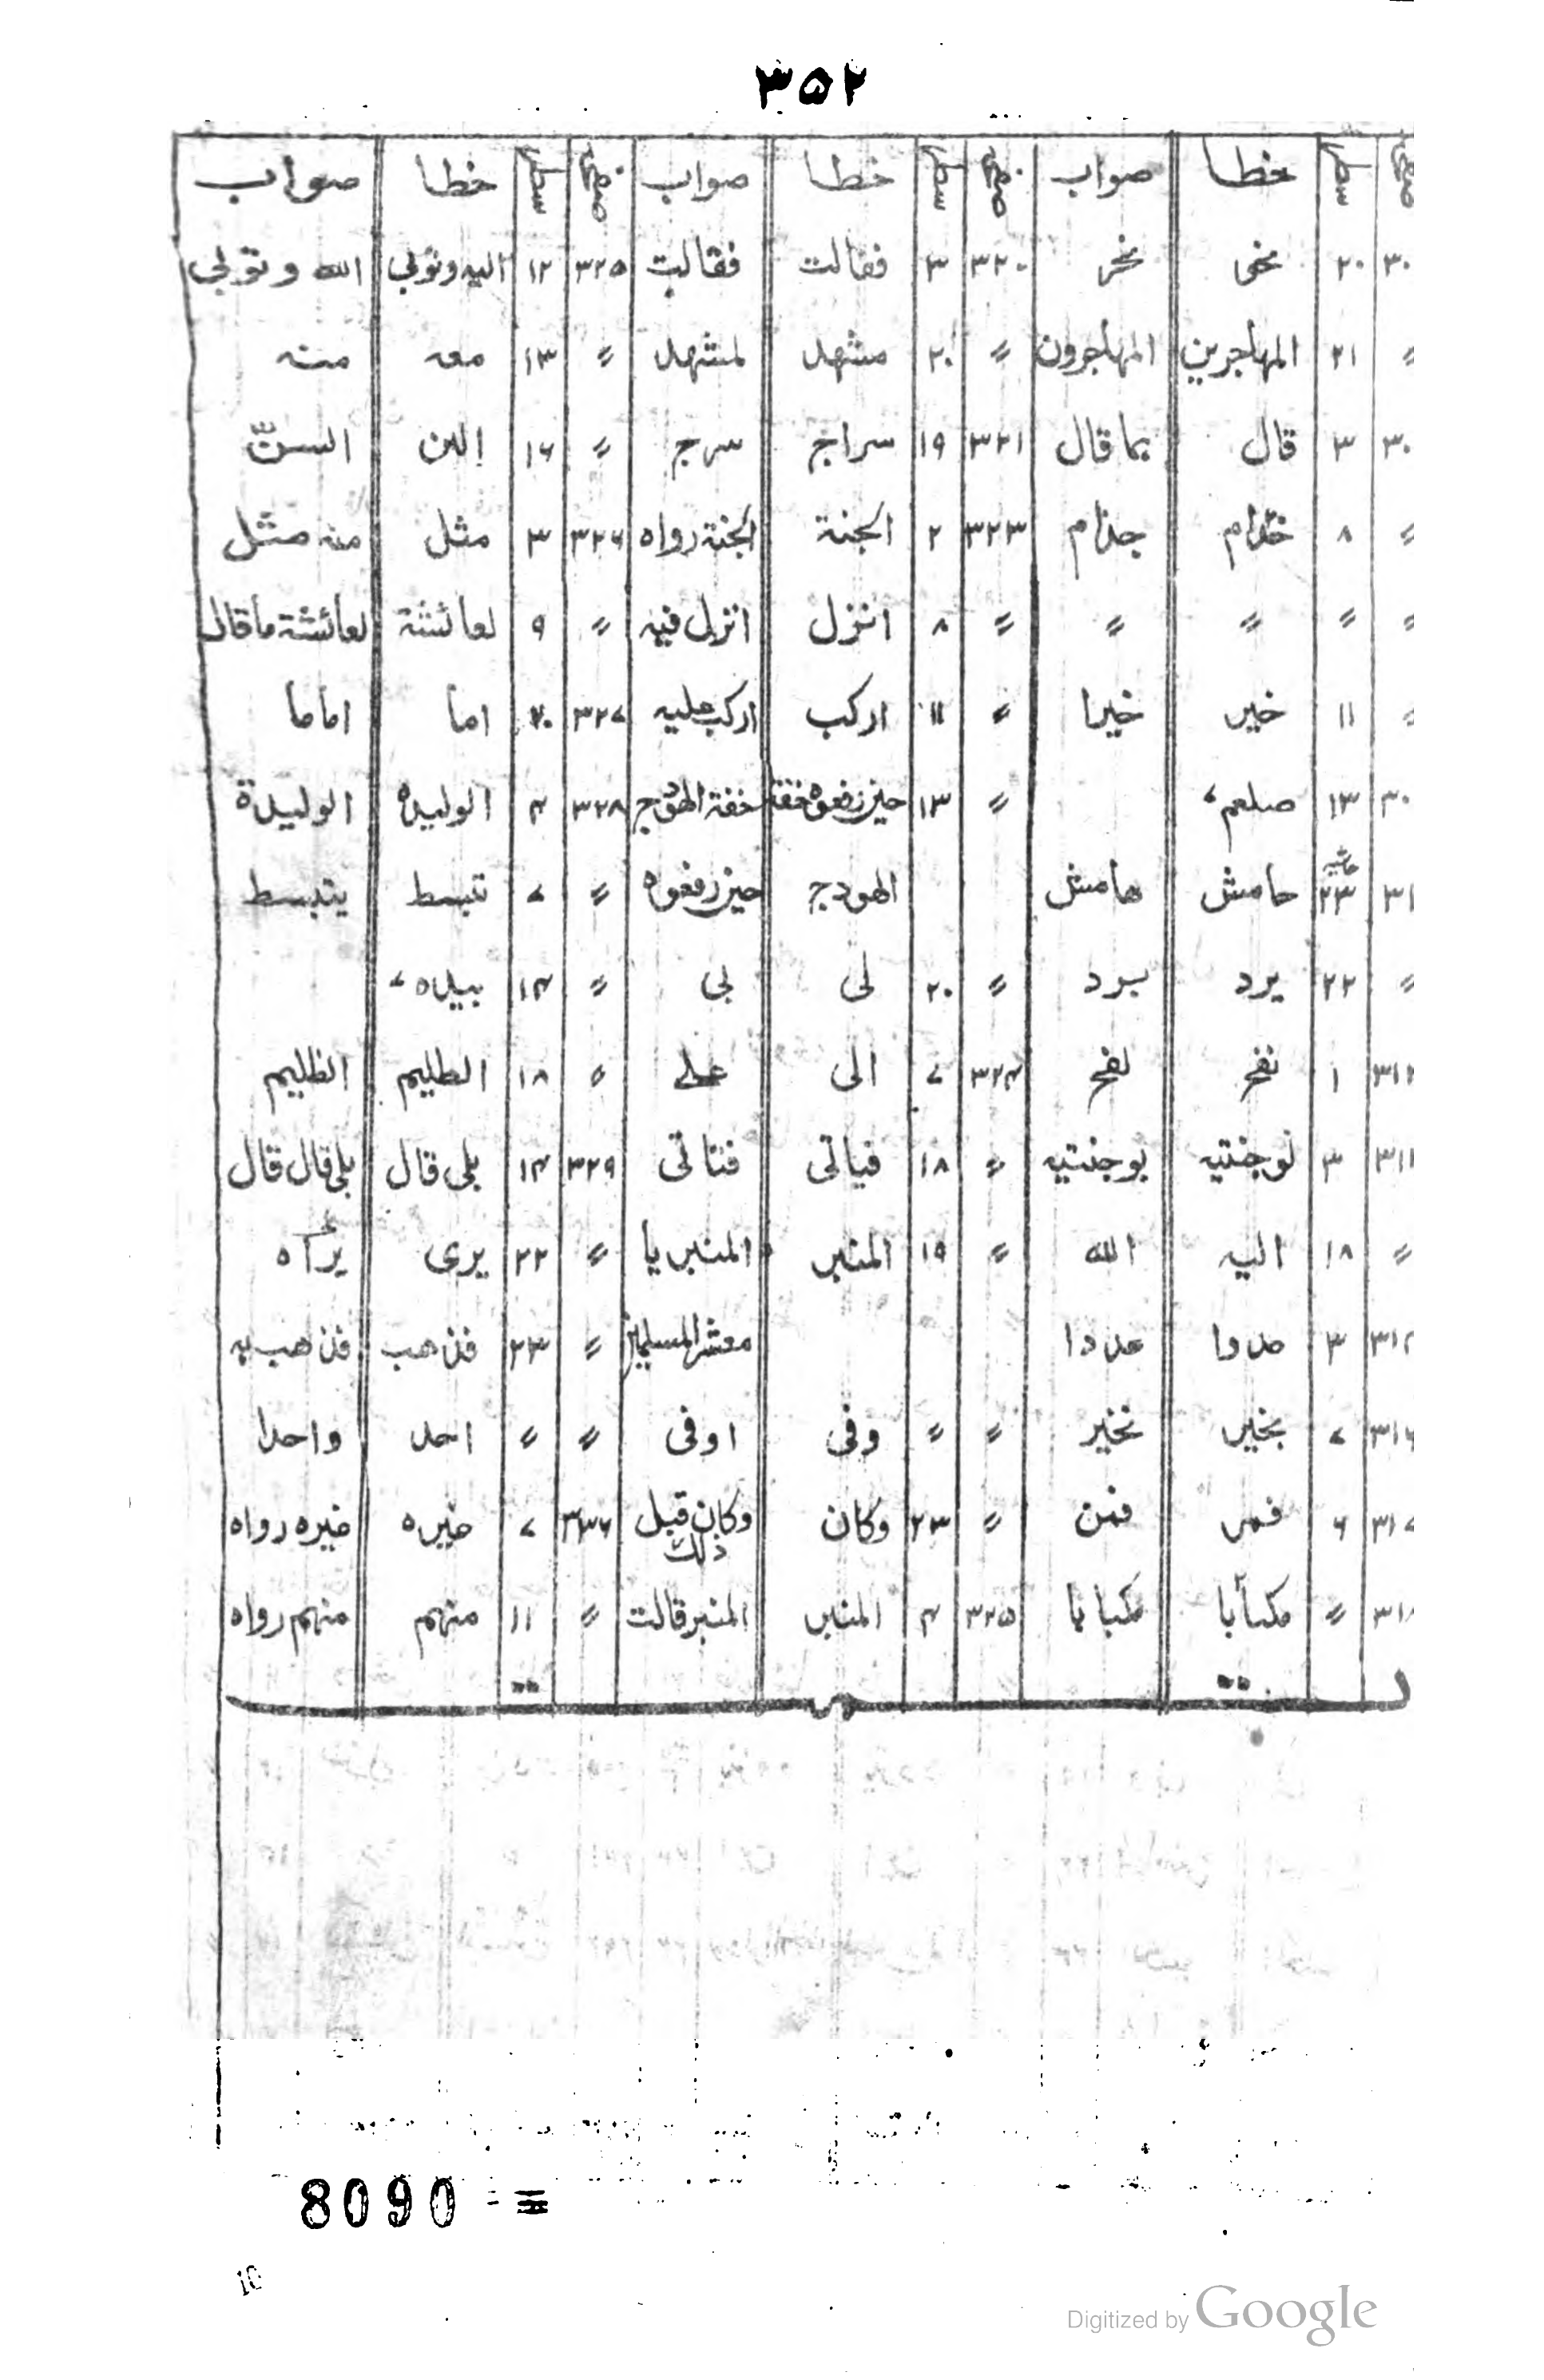 ۳۵۲
صفحہ سطر خطا صواب صفحہ سطر خطا صواب صفحہ سطر خطا صواب
۲۰ نخر ۳۲۰ ۳ فقالت ۳۲۵ ۱۲ اليه وتولي الله وتولي
〃 ۲۱ المهاجرين المهاجرون 〃 ۲۰ مشهد لمشهد 〃 ۱۳ معه منه
۳ قال بما قال ۳۲۱ ۱۹ سراج سرج 〃 ۱۶ السن
〃 ۸ جذام ۳۲۳ ۲ الجنة الجنة رواه ۳۲۶ ۳ مثل منه مثل
〃 〃 〃 〃 〃 ۸ انزل انزل فيه 〃 ۹ لعائشة لعائشة ما قال
〃 ۱۱ خير خيرا 〃 ۱۱ اركب اركب عليه ۳۲۷ ۲۰ اما اماما
۱۳ صلعم، 〃 ۱۳ حين رفعوه خفة خفة الهودج ۳۲۸ ۴ الوليده الوليدة
۲۳ حامش هامش الهودج حين رفعوه 〃 ۷ تبسط ينبسط
〃 ۲۲ يرد برد 〃 ۲۰ لى بى 〃 ۱۴ بيده،
۱ نفح لفح ۳۲۴ ۷ الى على 〃 ۱۸ الطليم الظليم
۳ لوجنتيه بوجنتيه 〃 ۱۸ فياتى فتاتى ۳۲۹ ۱۴ بلى قال بلى قال قال
〃 ۱۸ اليه الله 〃 ۱۹ المنبر المنبر يا 〃 ۲۲ يرى يرآه
۳ عددا معشر المسلمين 〃 ۲۳ فذهب فذهب به
۷ بخير نخير 〃 〃 وفى اوفى 〃 〃 احد واحدا
۶ فمر فمن 〃 ۲۳ وكان وكان قبل ذلك ۳۳۶ ۷ خيره خيره رواه
〃 ۳۲۵ ۴ المنبر المنبر قالت 〃 ۱۱ منهم منهم رواه
8090 =
10
Digitized by Google